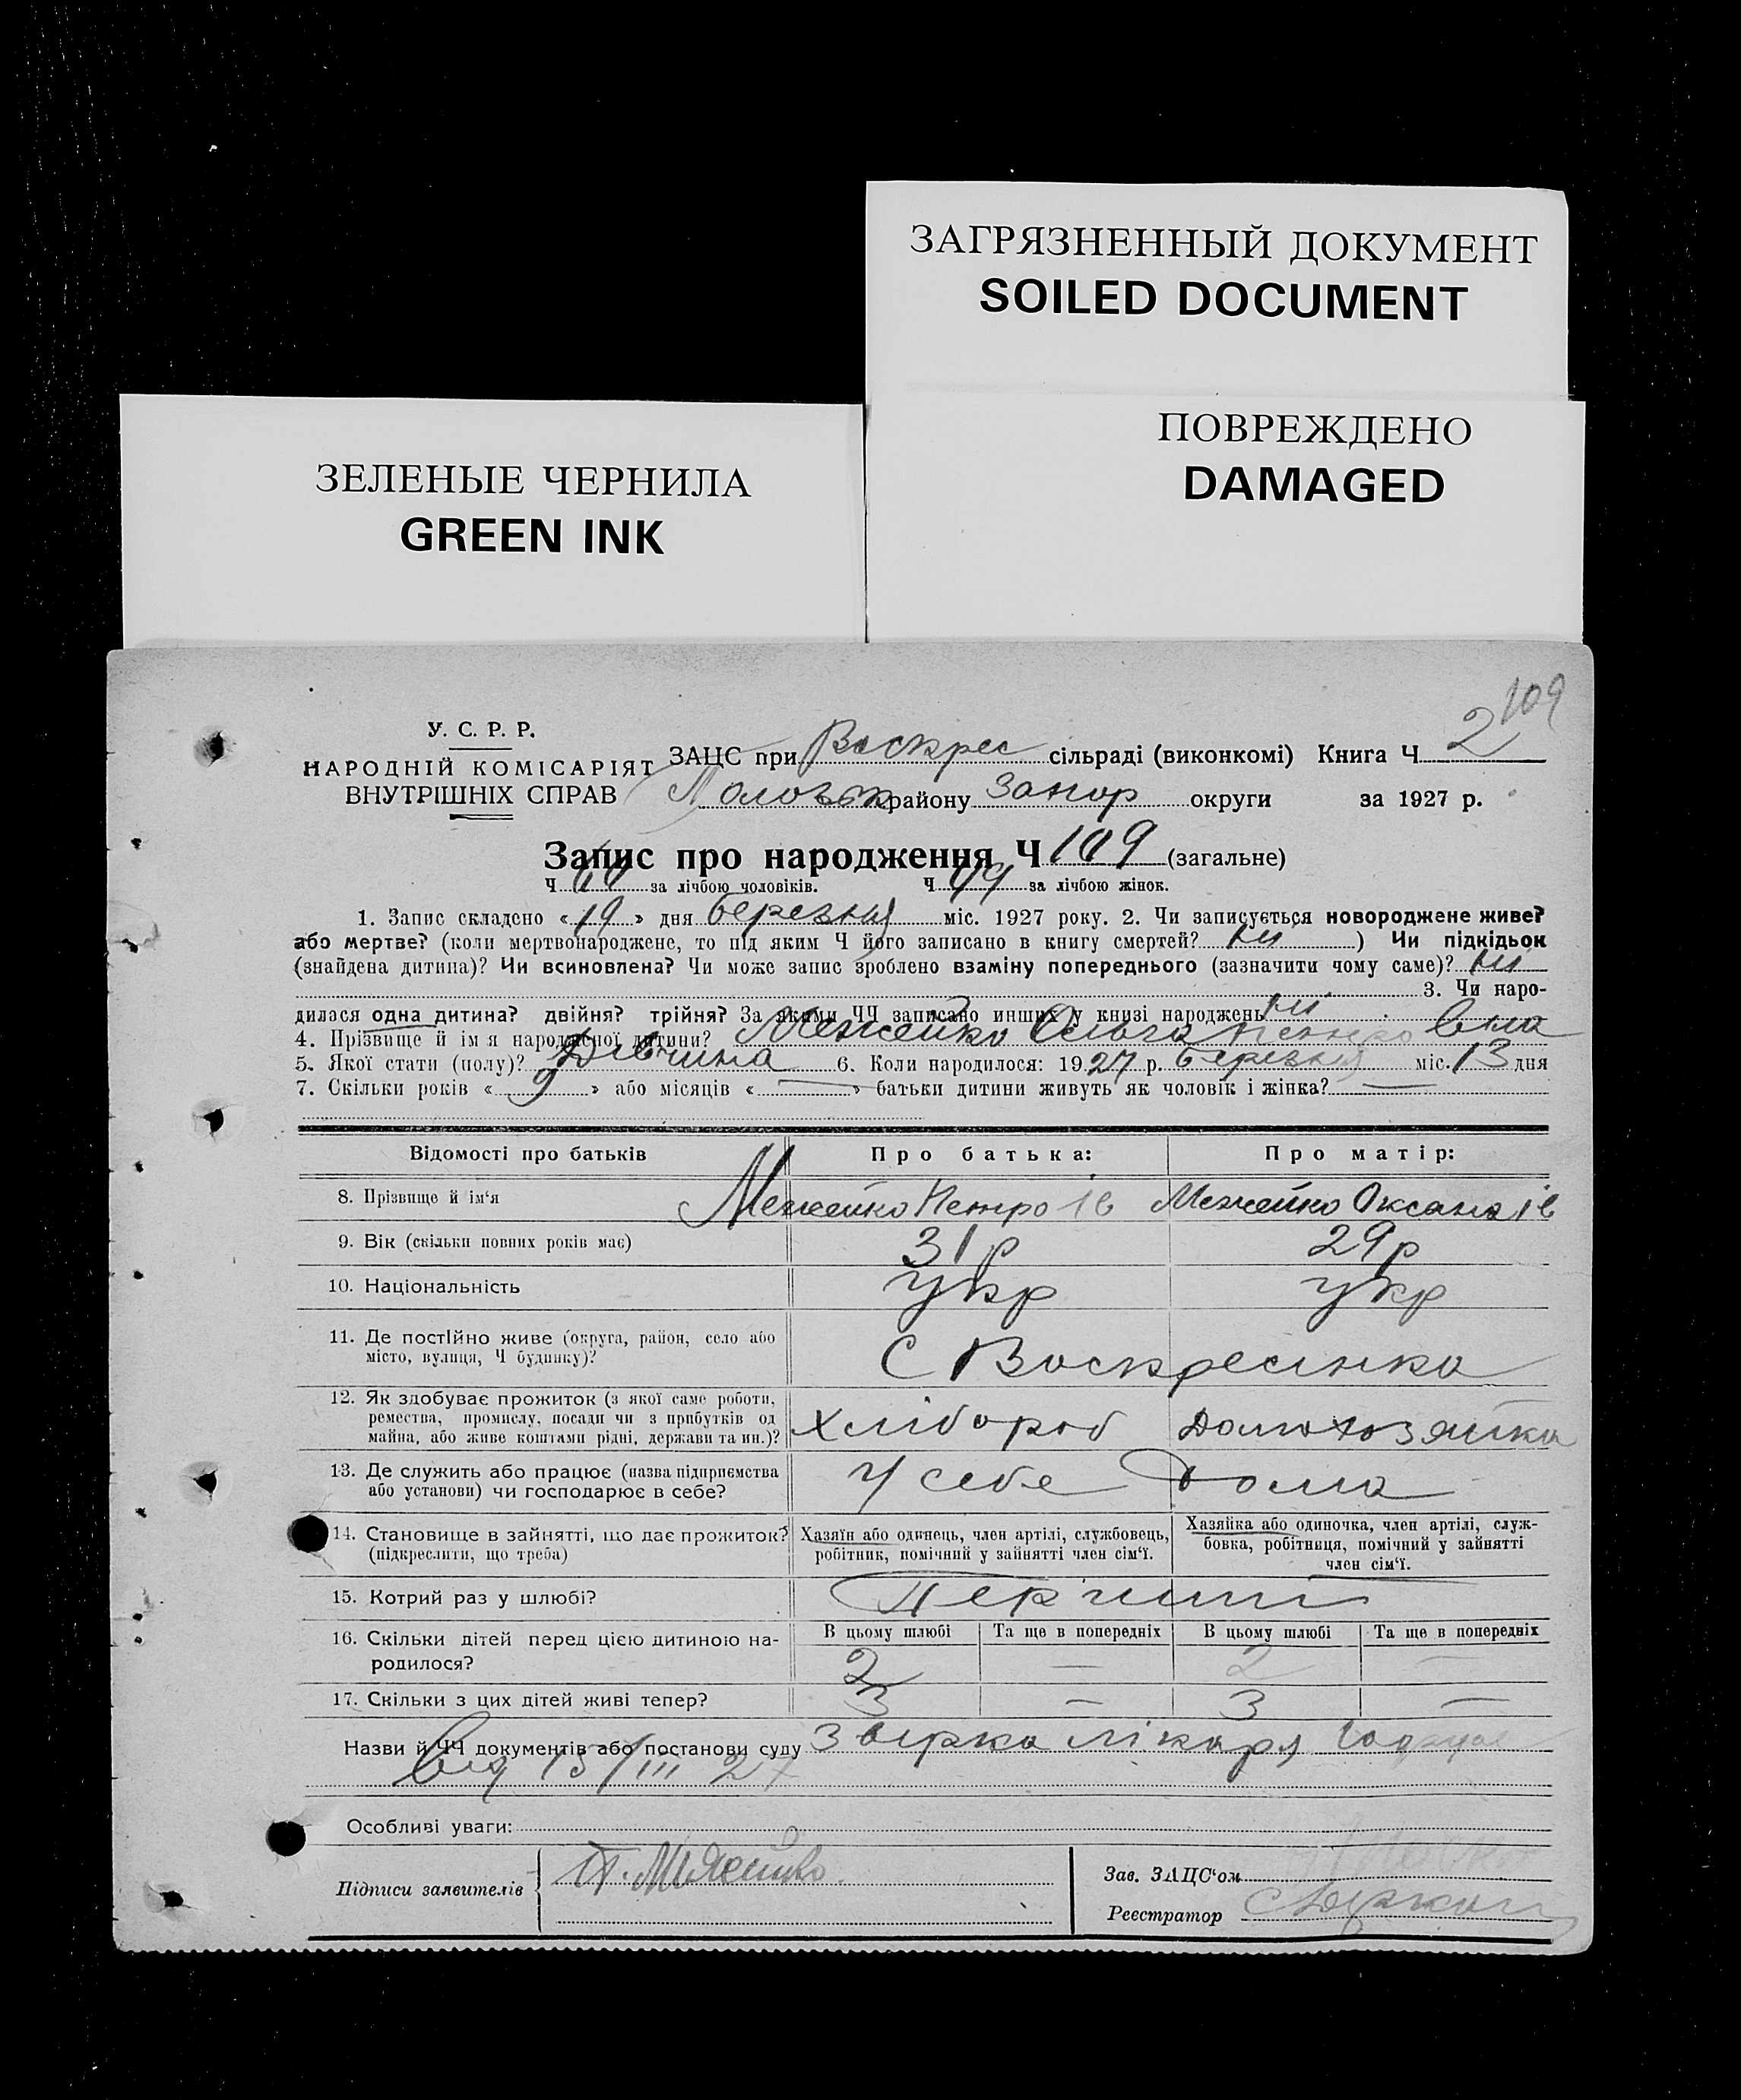 ЗАГРЯЗНЕННЫЙ ДОКУМЕНТ
SOILED DOCUMENT
ПОВРЕЖДЕНО
DAMAGED
ЗЕЛЕНЫЕ ЧЕРНИЛА
GREEN INK
109
У. С. Р. Р.
НАРОДНІЙ КОМІСАРІЯТ
ВНУТРІШНІХ СПРАВ
ЗАЦС при Воскрес сільраді (виконкомі) Книга Ч 2
району Запор округи за 1927 р.
Запис про народження Ч 109 (загальне)
Ч 60 за лічбою чоловіків. Ч 49 за лічбою жінок.
1. Запис складено «19» дня березня міс. 1927 року. 2. Чи записується новороджене живе?
або мертве? (коли мертвонароджене, то під яким Ч його записано в книгу смертей? ні ) Чи підкідьок
(знайдена дитина)? Чи всиновлена? Чи може запис зроблено взаміну попереднього (зазначити чому саме)? ні
3. Чи наро-
дилася одна дитина? двійня? трійня? За якими ЧЧ записано инших у книзі народжень ні
4. Прізвище й ім я народженої дитини? Межейко Ольга Петровіна
5. Якої стати (полу)? Дівчина 6. Коли народилося: 1927 р. березня міс. 13 дня
7. Скільки років « 9 » або місяців « — » батьки дитини живуть як чоловік і жінка? —
Відомості про батьків Про батька: Про матір:
8. Прізвище й ім'я Межейко Петро Ів Межейко Оксана Ів
9. Вік (скільки повних років має) 31 р 29 р
10. Національність укр укр
11. Де постійно живе (округа, район, село або
місто, вулиця, Ч будинку)? С Воскресінка
12. Як здобуває прожиток (з якої саме роботи,
ремества, промислу, посади чи з прибутків од
майна, або живе коштами рідні, держави та ин.)? Хлібороб Домохозяйка
13. Де служить або працює (назва підприємства
або установи) чи господарює в себе? У себе Дома
14. Становище в зайнятті, що дає прожиток?
(підкреслити, що треба)
Хазяїн або одинець, член артілі, службовець,
робітник, помічний у зайнятті член сім'ї.
Хазяйка або одиночка, член артілі, служ-
бовка, робітниця, помічний у зайнятті
член сім'ї.
15. Котрий раз у шлюбі? Перший
16. Скільки дітей перед цією дитиною на-
родилося?
В цьому шлюбі Та ще в попередніх В цьому шлюбі Та ще в попередніх
2 — 2 —
17. Скільки з цих дітей живі тепер? 3 — 3 —
Назви й ЧЧ документів або постанови суду лікаря
від 15/III 27
Особливі уваги:
Підписи заявителів
Зав. ЗАЦС'ом
Реєстратор